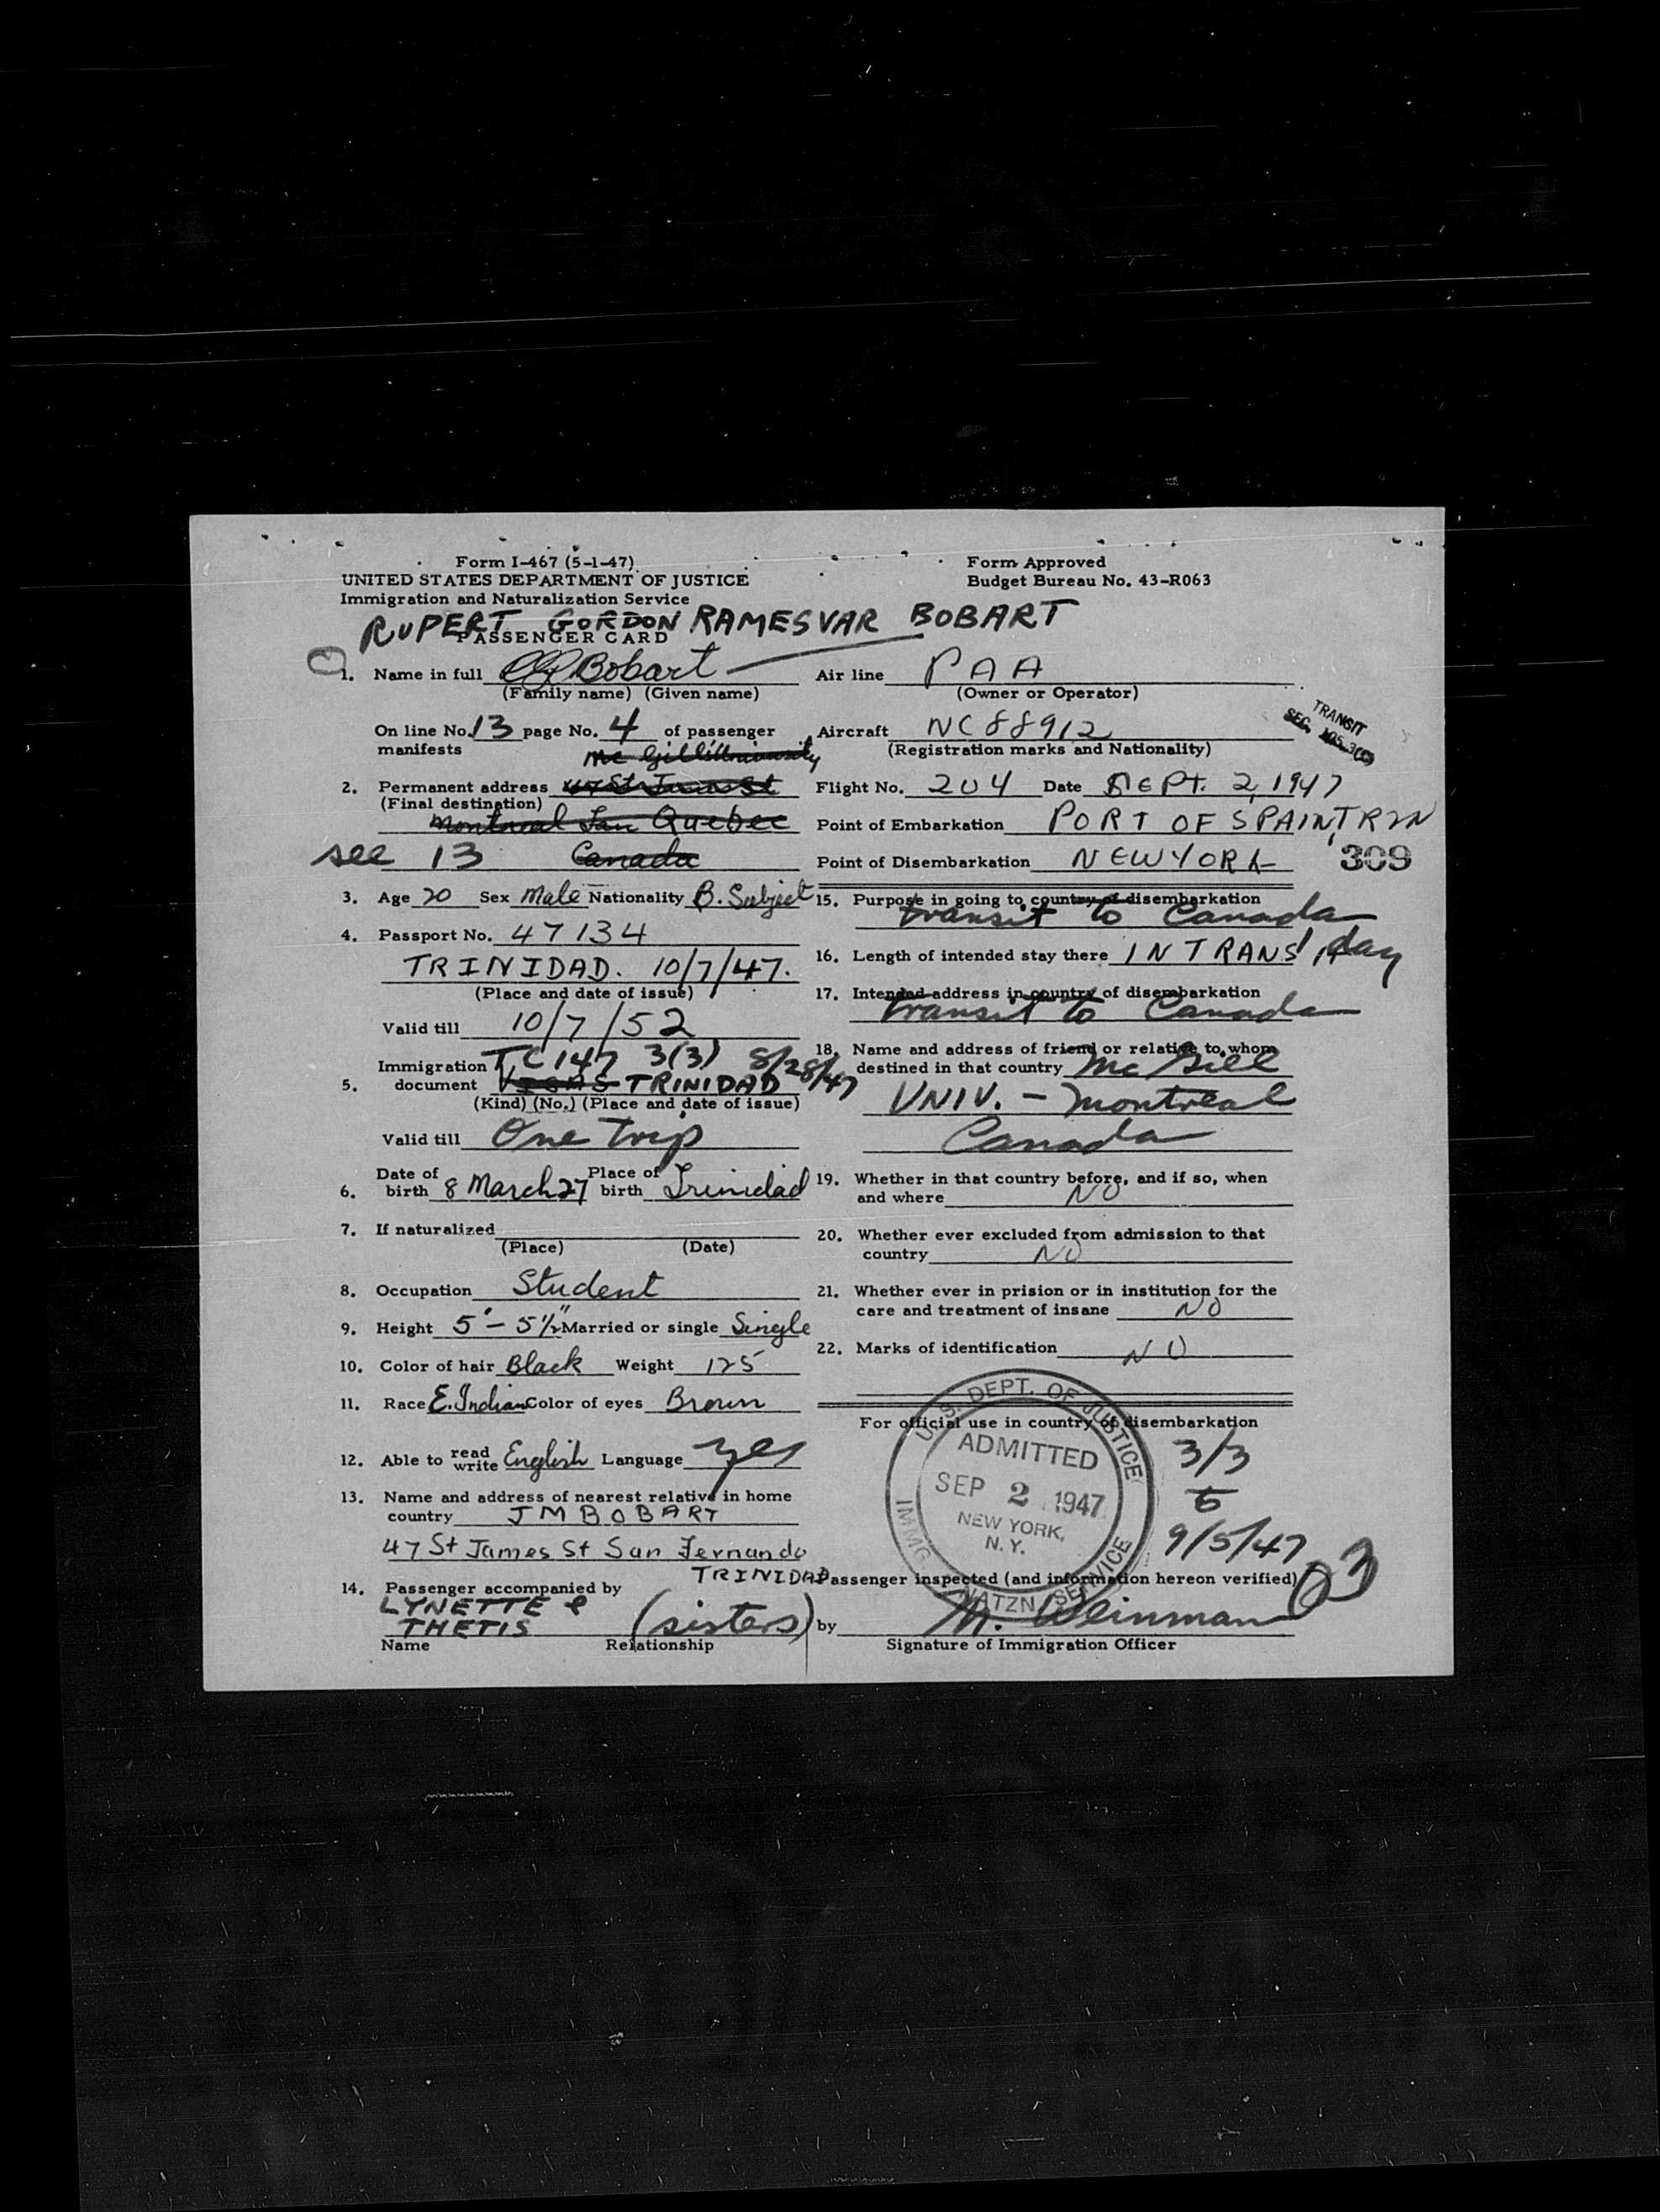 Form I-467 (5-1-47)
UNITED STATES DEPARTMENT OF JUSTICE
Immigration and Naturalization Service
Form Approved
Budget Bureau No. 43-R063
RUPERT GORDON RAMESVAR BOBART
PASSENGER CARD
1. Name in full Bobart
(Family name) (Given name)
On line No. 13 page No. 4 of passenger
manifests
Mc Gill University
2. Permanent address 47 St James St
(Final destination)
Montreal San Quebec
see 13 Canada
3. Age 20 Sex Male Nationality B. Subject
4. Passport No. 47134
TRINIDAD. 10/7/47.
(Place and date of issue)
Valid till 10/7/52
Immigration TC 147 3(3) 8/28/47
5. document TRINIDAD
(Kind) (No.) (Place and date of issue)
Valid till One trip
6. Date of birth 8 March 27 Place of birth Trinidad
7. If naturalized
(Place) (Date)
8. Occupation Student
9. Height 5' - 5½" Married or single Single
10. Color of hair Black Weight 125
11. Race E. Indian Color of eyes Brown
12. Able to read write English Language yes
13. Name and address of nearest relative in home
country J M BOBART
47 St James St San Fernando
TRINIDAD
14. Passenger accompanied by
LYNETTE &
THETIS (sisters)
Name Relationship
Air line PAA
(Owner or Operator)
Aircraft NC 88912
(Registration marks and Nationality)
TRANSIT
SEC.
Flight No. 204 Date SEPT. 2, 1947
Point of Embarkation PORT OF SPAIN, TRIN
Point of Disembarkation NEW YORK
309
15. Purpose in going to country of disembarkation
transit to Canada
16. Length of intended stay there IN TRANS 1 day
17. Intended address in country of disembarkation
transit to Canada
18. Name and address of friend or relative to whom
destined in that country Mc Gill
UNIV. - Montreal
Canada
19. Whether in that country before, and if so, when
and where NO
20. Whether ever excluded from admission to that
country NO
21. Whether ever in prision or in institution for the
care and treatment of insane NO
22. Marks of identification NO
For official use in country of disembarkation
U.S. DEPT. OF JUSTICE
ADMITTED
SEP 2 1947
NEW YORK,
N.Y.
IMMG NATZN SERVICE
3/3
5
9/5/47
Passenger inspected (and information hereon verified)
03
by M. Weinman
Signature of Immigration Officer